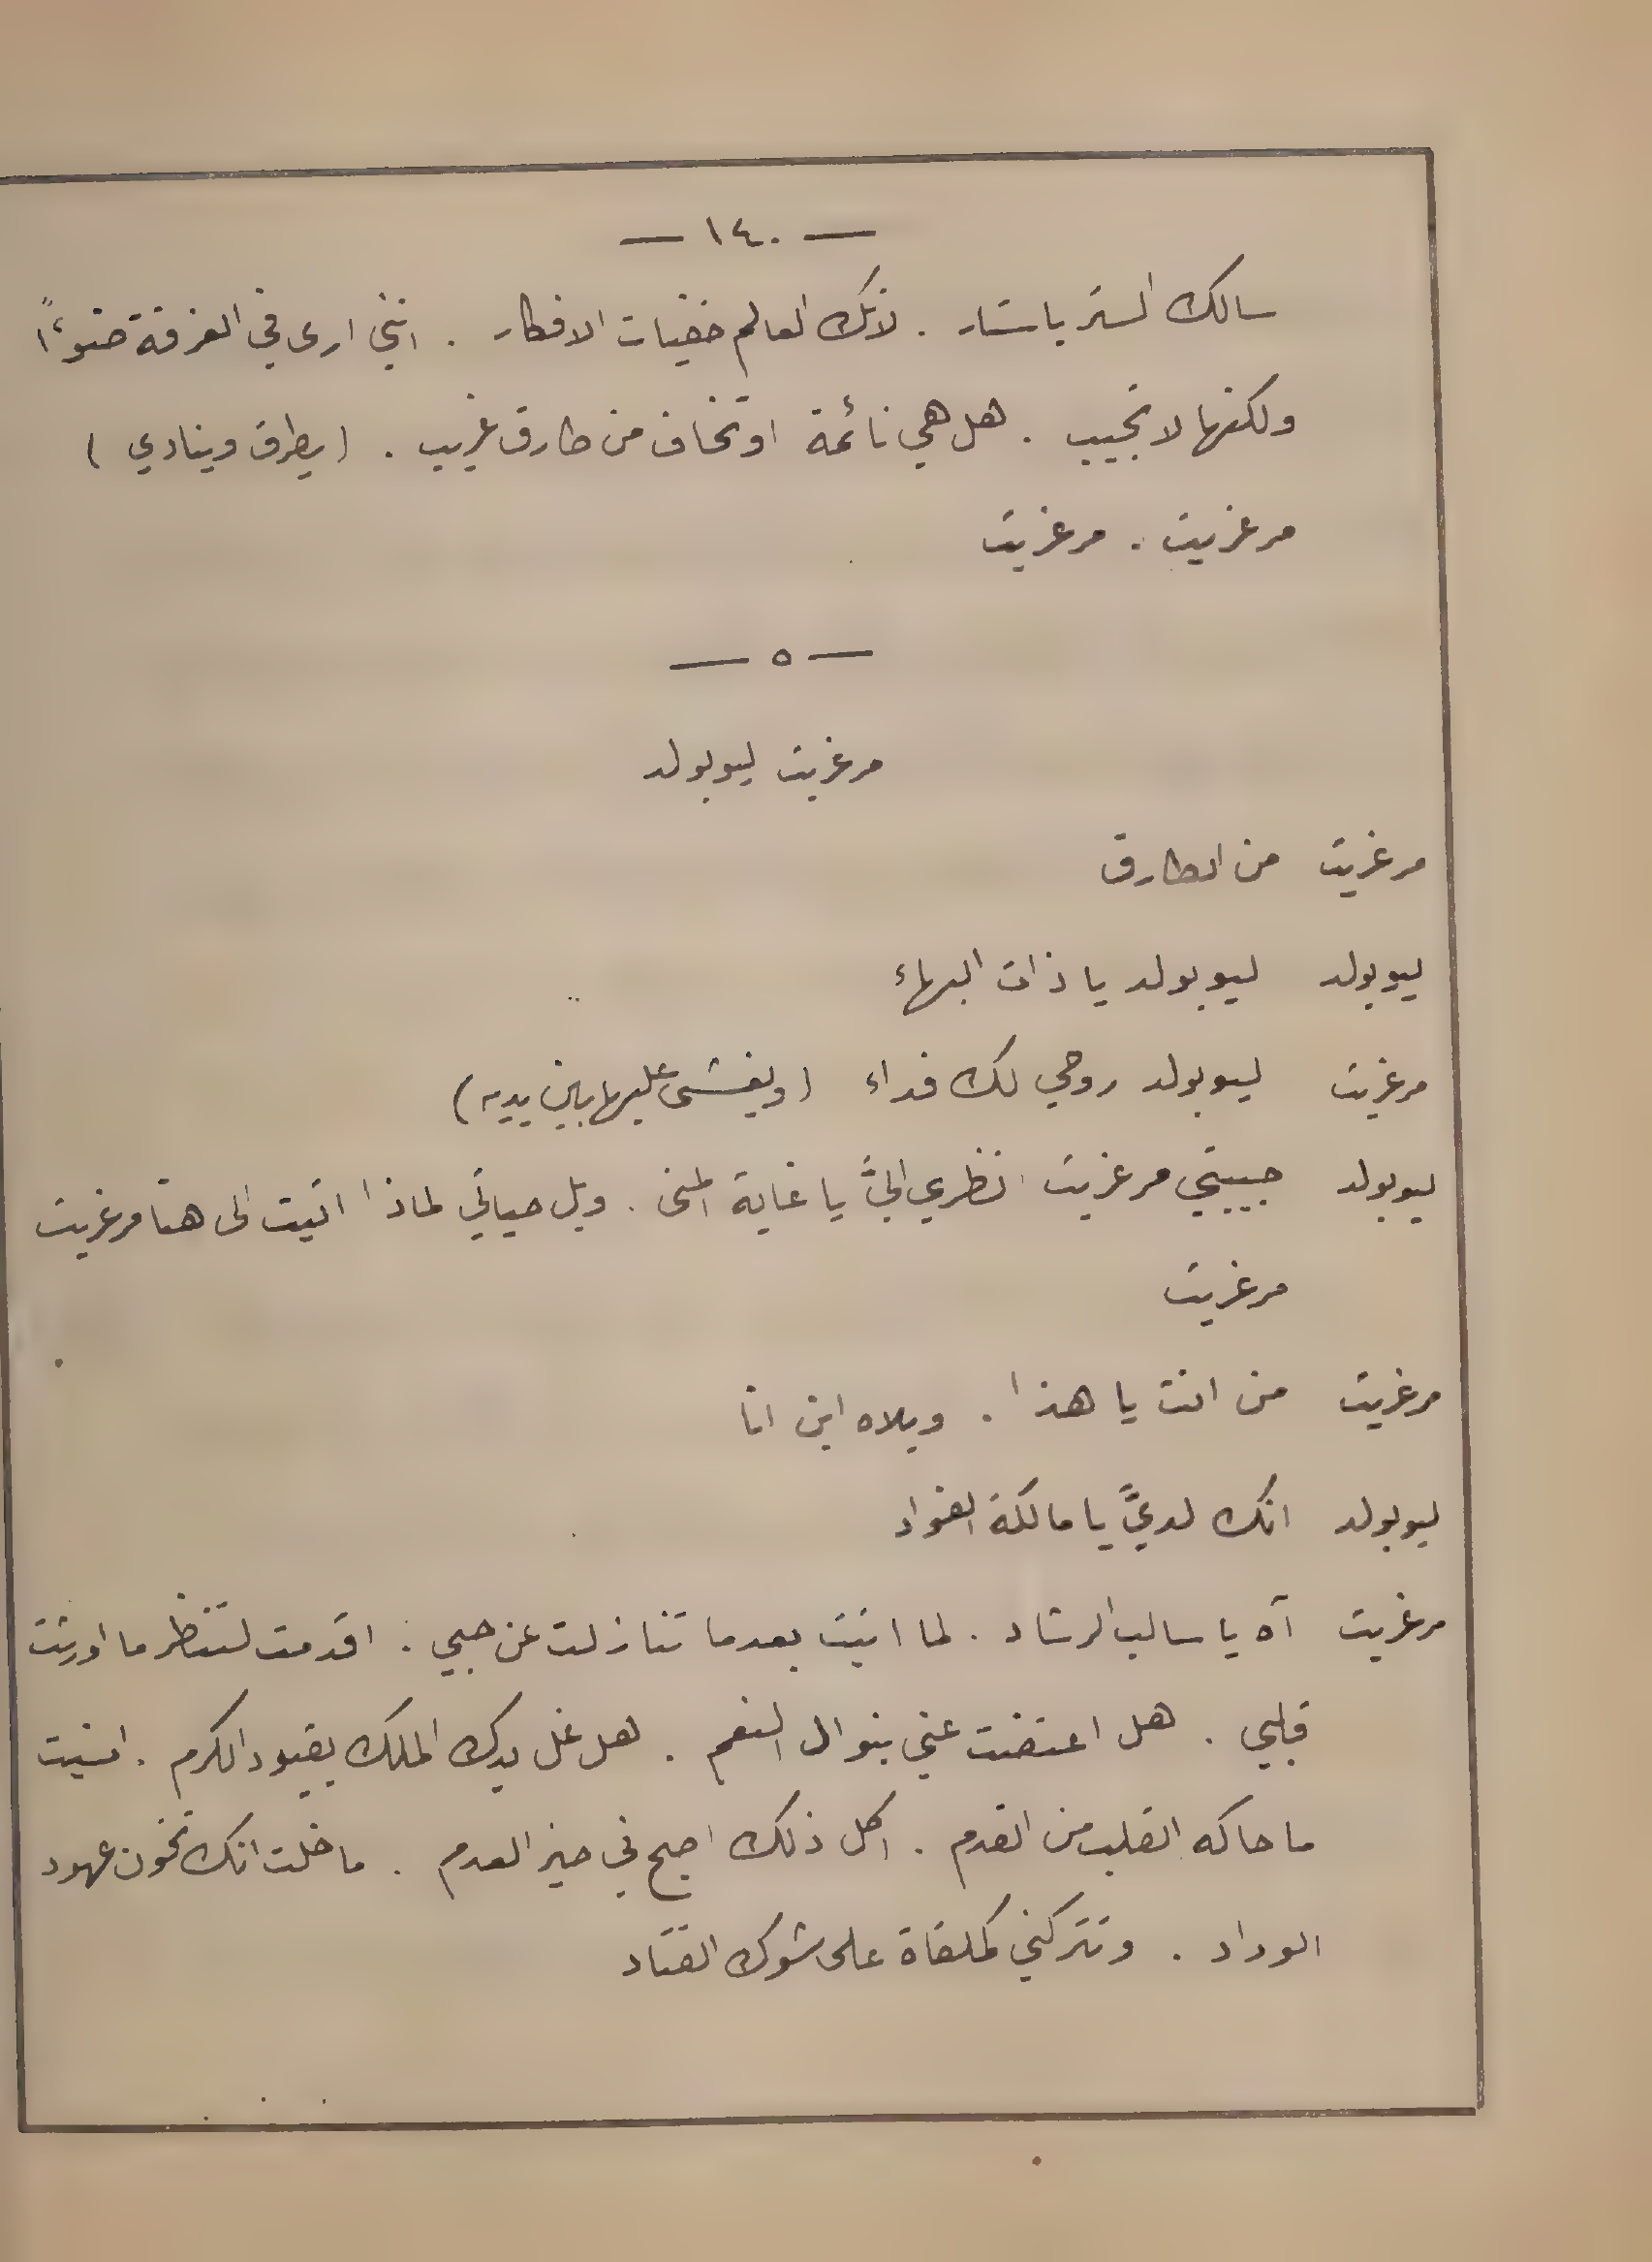 — ١٤٠ —
سالك الستر يا ستار . لانك العالم خفيات الافكار . انني ارى في الغرفة ضوءًا
ولكنها لا تجيب . هل هي نائمة او تخاف من طارق غريب . (يطرق وينادي)
مرغريت . مرغريت
— ٥ —
مرغريت ليوبولد
مرغريت من الطارق
ليوبولد ليوبولد يا ذات البهاء
مرغريت ليوبولد روحي لك فداء (ويغشى عليها بين يديه)
ليوبولد حبيبتي مرغريت انظري اليَّ يا غاية المنى . ويل حياتي لماذا اتيت الى هنا مرغريت
مرغريت
مرغريت من انت يا هذا . ويلاه اين انا
ليوبولد انك لديَّ يا مالكة الفواد
مرغريت آه يا سالب الرشاد . لما اتيت بعدما تنازلت عن حبي . اقدمت لتنظر ما اورثت
قلبي . هل اعتضت عني بنوال النعم . هل غل يدك الملك بقيود الكرم . انسيت
ما حاكه القلب من القدم . اكل ذلك اصبح في حيز العدم . ما خلت انك تخون عهود
الوداد . وتتركني كملقاة على شوك القتاد